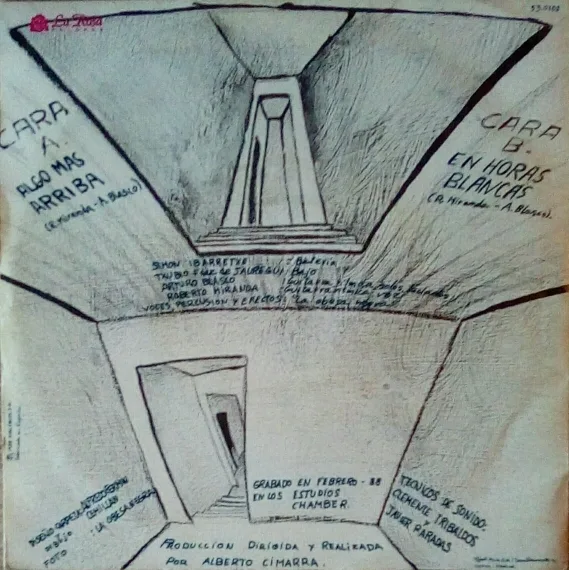 La Rosa
RECORDS
CARA
A.
ALGO MAS
ARRIBA
(R. Miranda - A. Blasco)
CARA
B.-
EN HORAS
BLANCAS
(R. Miranda - A. Blasco).
SIMON IBARRETXE : Batería
DE JAUREGUI : Bajo
ARTURO BLASCO : Guitarra
ROBERTO MIRANDA : Guitarra
VOCES, PERCUSION Y EFECTOS: "La obesa negra"
GRABADO EN FEBRERO - 88
EN LOS ESTUDIOS
CHAMBER.
DISEÑO
DIBUJO
FOTO : LA OBESA NEGRA
TECNICOS DE SONIDO:
CLEMENTE TRIBALDOS
Y
JAVIER PARADAS
PRODUCCION DIRIGIDA Y REALIZADA
POR ALBERTO CIMARRA.